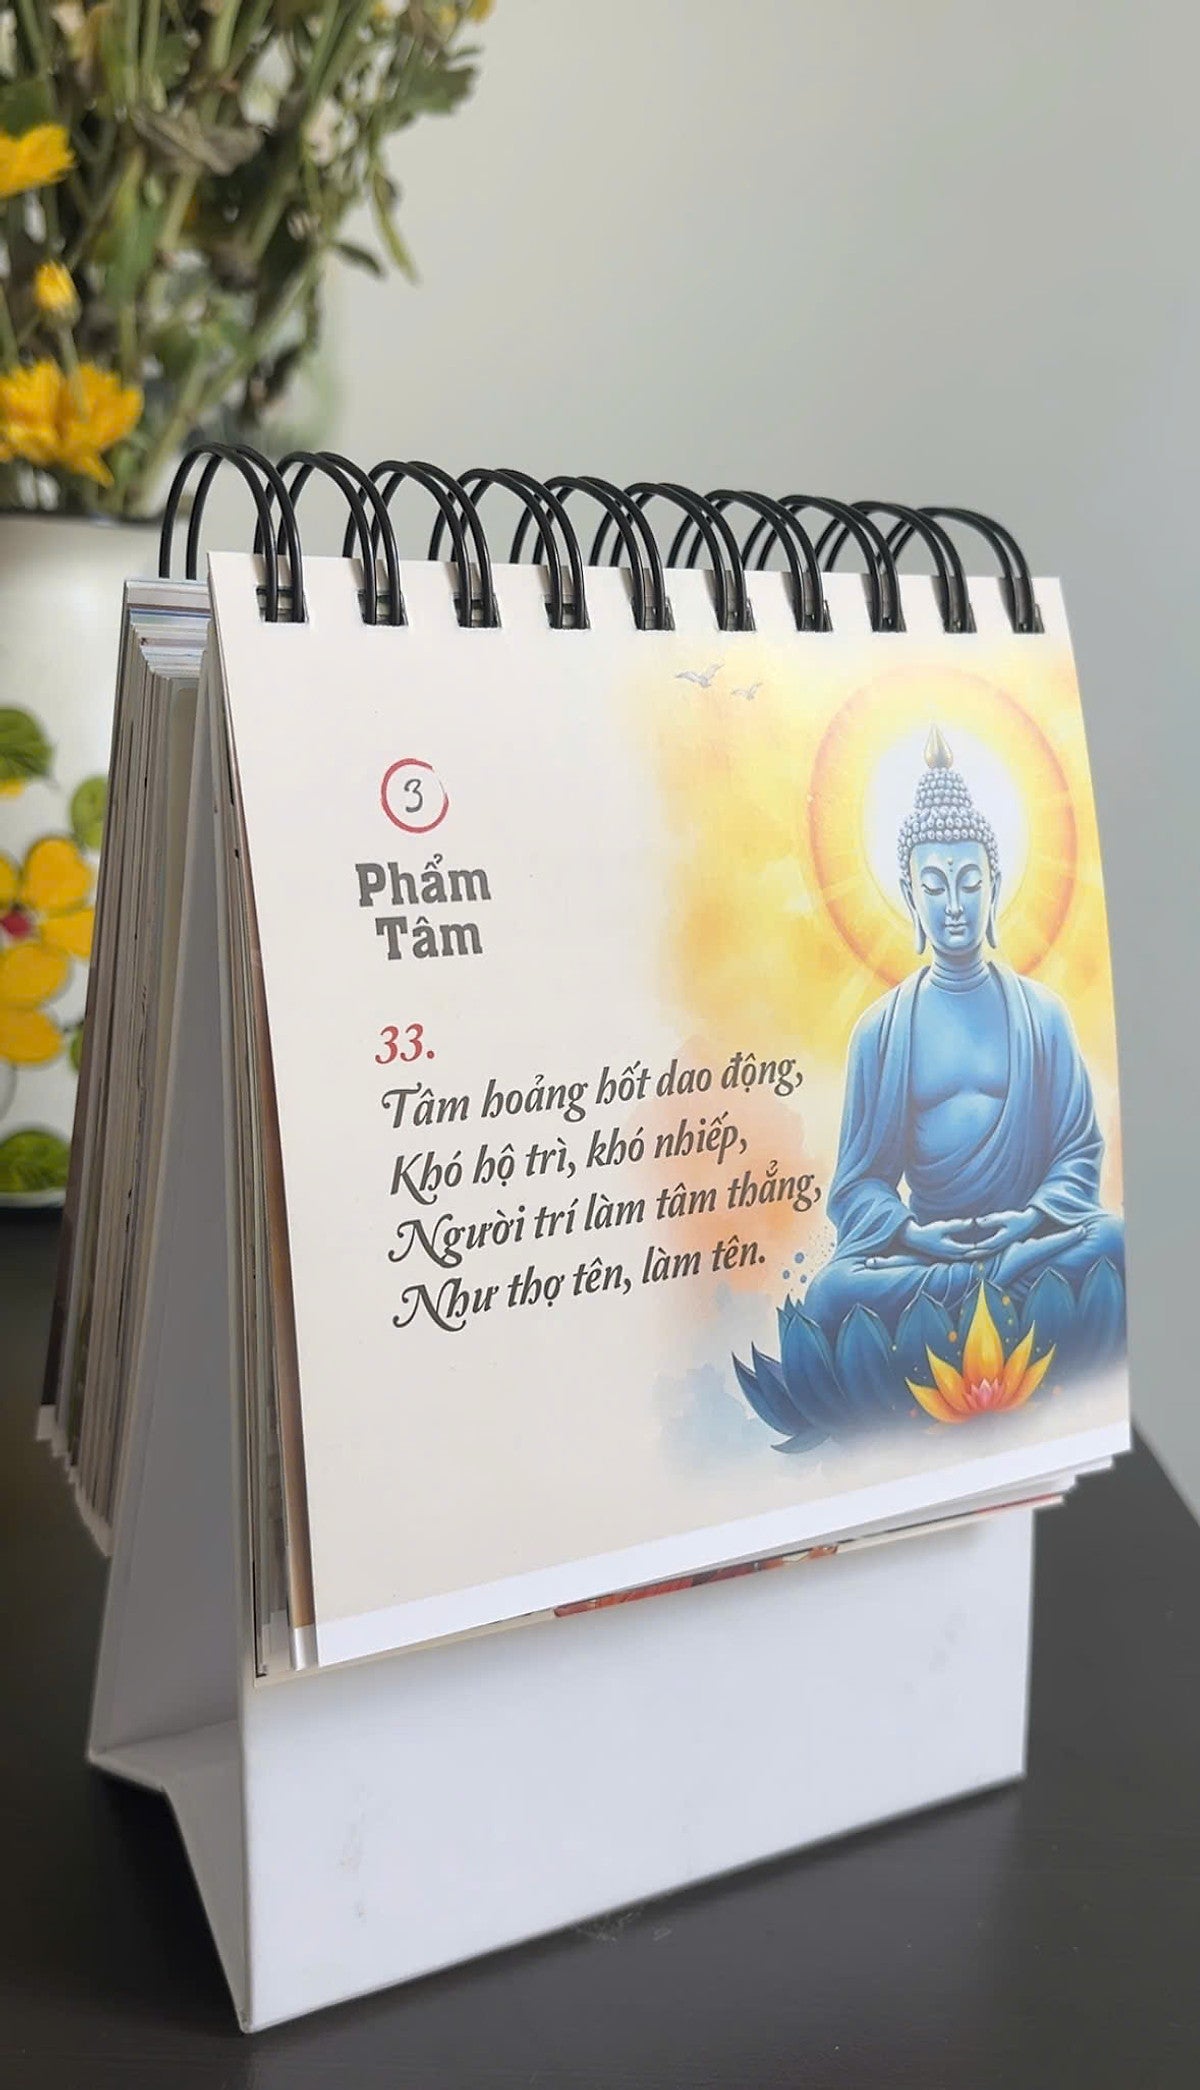 3
Phẩm
Tâm
33.
Tâm hoảng hốt dao động,
Khó hộ trì, khó nhiếp,
Người trí làm tâm thẳng,
Như thợ tên, làm tên.